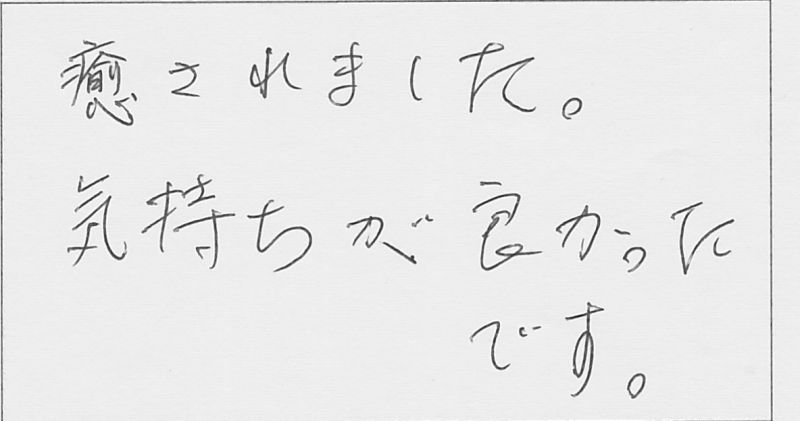 癒されました。
気持ちが良かった
です。